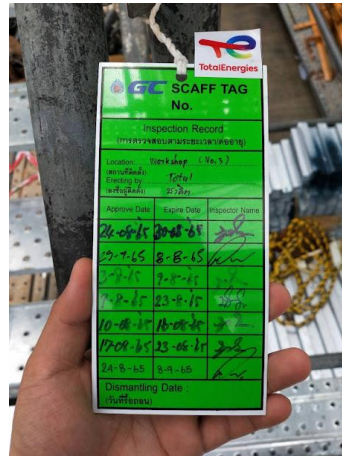 TotalEnergies
GC SCAFF TAG
No.
Inspection Record
(การตรวจสอบตามระยะเวลา/ต่ออายุ)
Location: Workshop (No.3)
(สถานที่ติดตั้ง)
Erecting by: Total
(ลงชื่อผู้ติดตั้ง)
Approve Date Expire Date Inspector Name
24-08-65 30-08-65
29-7-65 8-8-65
3-8-65 9-8-65
9-8-65 23-8-65
10-08-65 16-08-65
17-08-65 23-08-65
24-8-65 8-9-65
Dismantling Date :
(วันที่รื้อถอน)